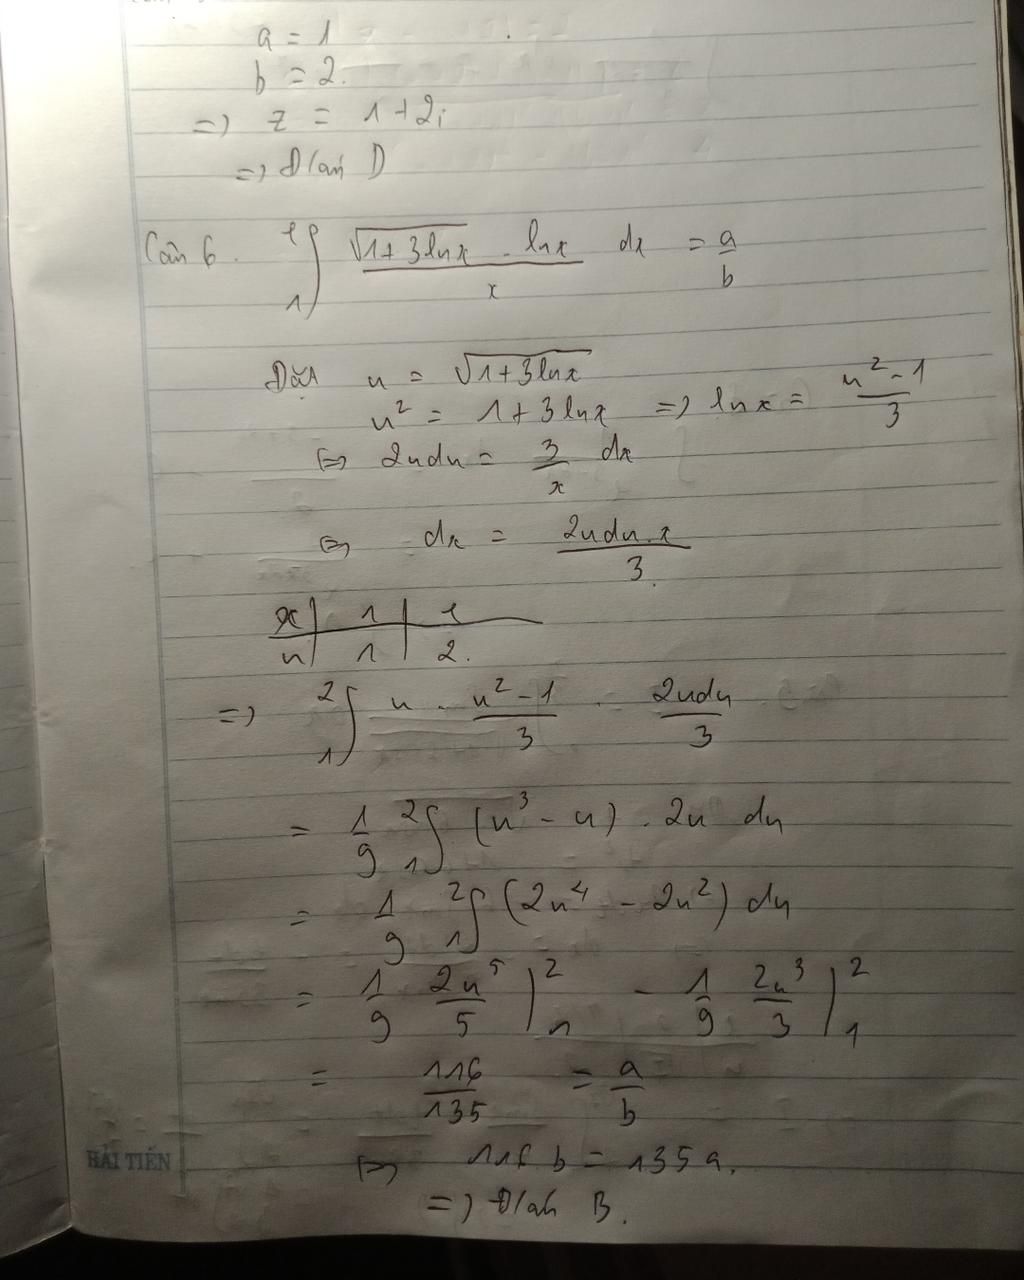 a = 1
b = 2.
=> z = 1+2i
=> Đ/án D
Câu 6. ∫₁ᵉ (√(1+3lnx) . lnx)/x dx = a/b
Đặt u = √(1+3lnx)
u² = 1+3lnx => lnx = (u²-1)/3
<=> 2udu = 3/x dx
<=> dx = (2udu.x)/3.
x | 1 | e
u | 1 | 2.
=> ∫₁² u . (u²-1)/3 . 2udu/3
= 1/9 ∫₁² (u³ - u) . 2u du
= 1/9 ∫₁² (2u⁴ - 2u²) du
= 1/9 2u⁵/5 |₁² - 1/9 2u³/3 |₁²
= 116/135 = a/b
<=> 116 b = 135a.
=> Đ/án B.
HẢI TIẾN